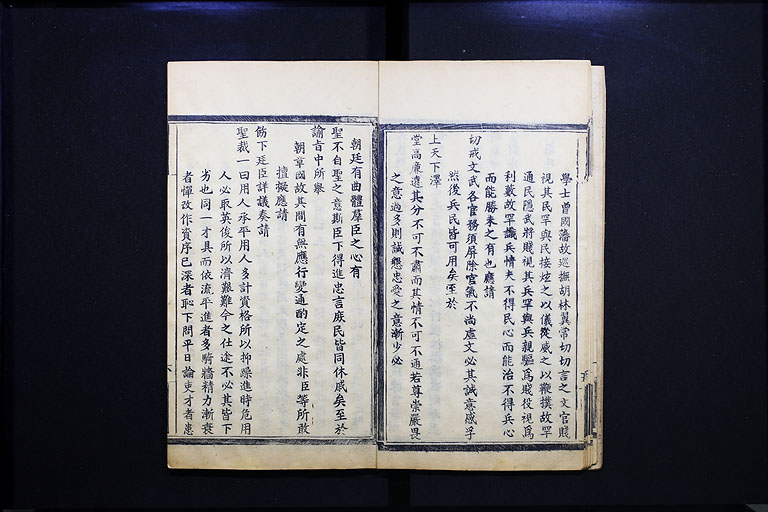 學士曾國藩故巡撫胡林翼常切切言之文官賤
視其民罕與民接炫之以儀從威之以鞭撲故罕
通民隱武將賤視其兵罕與兵親驅爲賤役視爲
利藪故罕識兵情夫不得民心而能治不得兵心
而能勝未之有也應請
切戒文武各官務須屏除官氣不尚虛文必其誠意感孚
然後兵民皆可用矣至於
上天下澤
堂高廉遠其分不可不肅而其情不可不通若尊崇嚴畏
之意過多則誠懇忠愛之意漸少必
朝廷有曲體羣臣之心有
聖不自聖之意斯臣下得進忠言庶民皆同休戚矣至於
諭旨中所舉
朝章國故其間有無應行變通酌定之處非臣等所敢
擅擬應請
飭下廷臣詳議奏請
聖裁一曰用人承平用人多計資格所以抑躁進時危用
人必取英俊所以濟艱難今之仕途不必其皆下
劣也同一才具而依流平進者多騎牆精力漸衰
者憚改作資序已深者恥下問平日論吏才者患
六